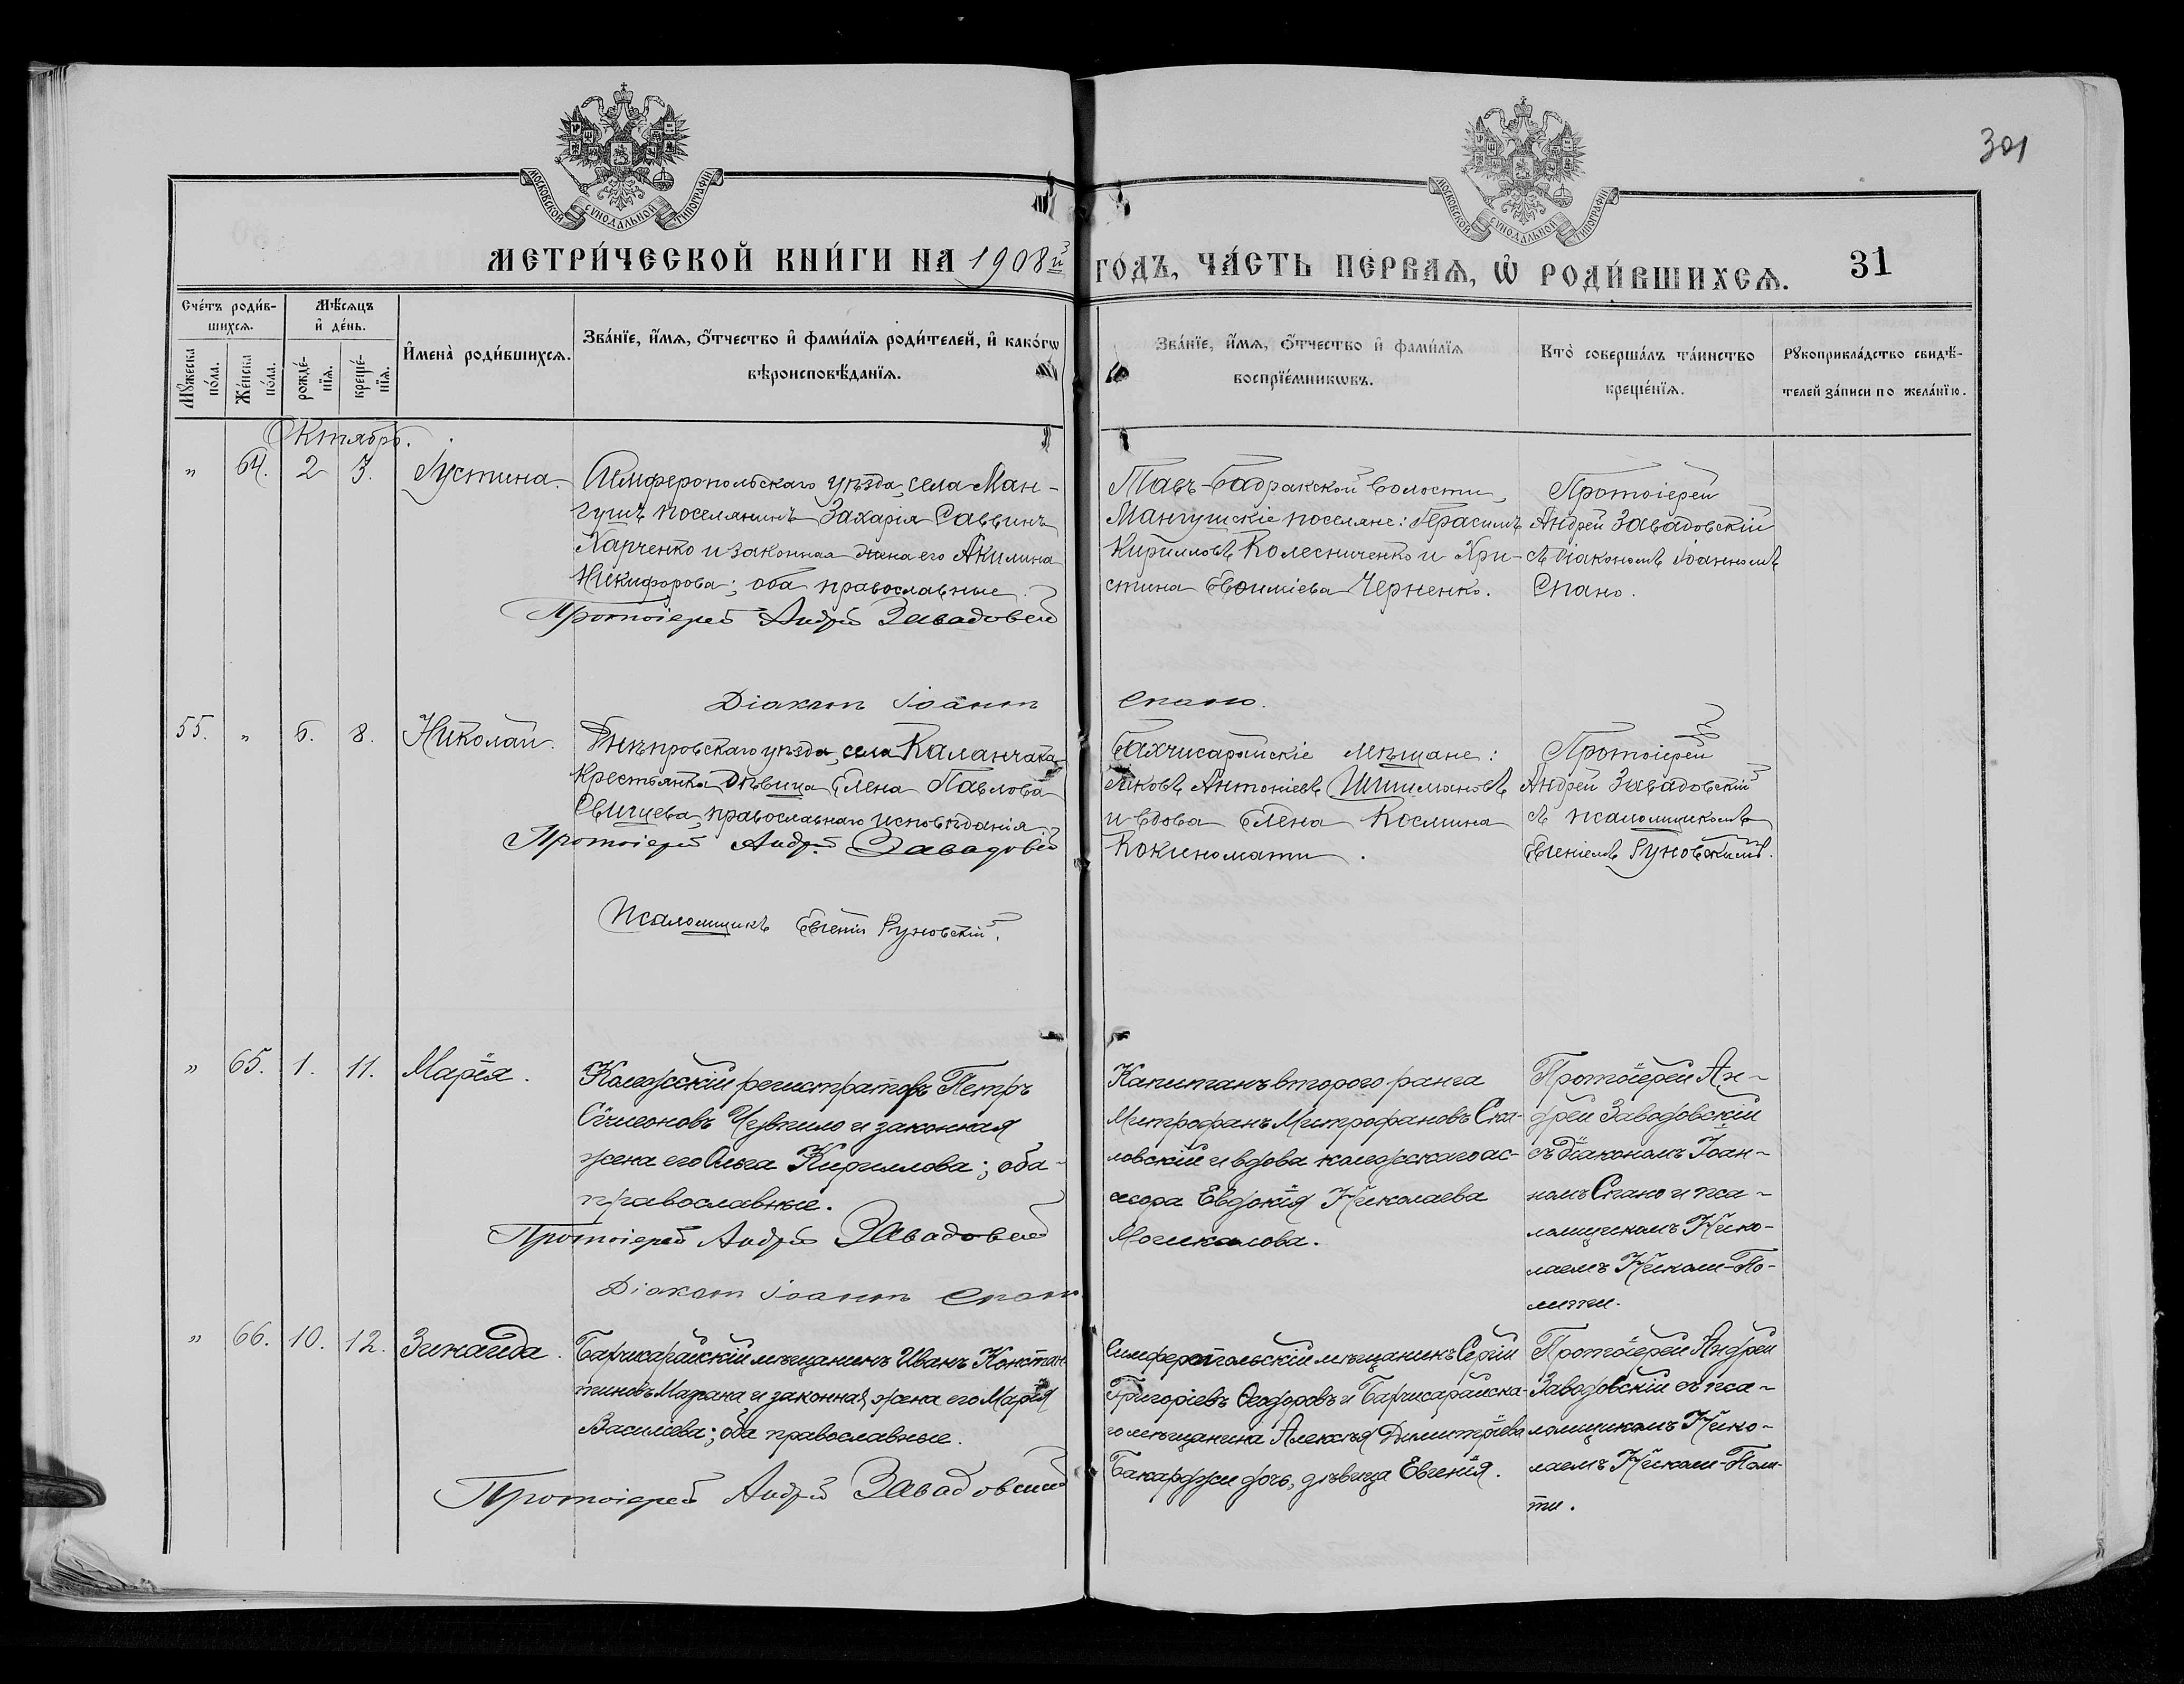 301
МОСКОВСКОЙ СѴНОДАЛЬНОЙ ТИПОГРАФІИ
МОСКОВСКОЙ СѴНОДАЛЬНОЙ ТИПОГРАФІИ
МЕТРИ́ЧЕСКОЙ КНИ́ГИ НА 1908й ГО́ДЪ, ЧА́СТЬ ПЕ́РВАѦ, Ѡ҆ РОДИ́ВШИХСѦ. 31
Сче́тъ роди́в-
шихсѧ.
Мꙋ́жеска по́ла.
Же́нска по́ла.
Мѣ́сяцъ
и҆ де́нь.
рожде́-
нїѧ.
креще́-
нїѧ.
И҆мена̀ роди́вшихсѧ.
Зва́нїе, и҆́мѧ, ѻ҆́тчество и҆ фами́лїѧ роди́телей, и҆ како́гѡ
вѣроисповѣ́данїѧ.
Зва́нїе, и҆́мѧ, ѻ҆́тчество и҆ фами́лїѧ
воспрїе́мникѡвъ.
Кто̀ соверша́лъ та́инство
креще́нїѧ.
Рꙋкоприкла́дство свидѣ́-
телей за́писи по жела́нїю.
Октябрь.
„ 64. 2 3. Іустина.
Симферопольскаго уѣзда, села Ман-
гушъ поселянинъ Захарія Саввинъ
Харченко и законная жена его Акилина
Никифорова; оба православные.
Протоіерей Андрей Завадовскій
Діаконъ Іоаннъ Спано.
Тавъ-Бадракской волости,
Мангушскіе поселяне: Герасимъ
Кирилловъ Колесниченко и Хри-
стина Евѳиміева Черненко.
Протоіерей
Андрей Завадовскій
съ діакономъ Іоанномъ
Спано.
55. „ 6. 8. Николай.
Днѣпровскаго уѣзда, села Каланчака
крестьянка дѣвица Елена Павлова
Свищева, православнаго исповѣданія
Протоіерей Андрей Завадовскій
Псаломщикъ Евгеній Руновскій.
Бахчисарайскіе мѣщане:
Яковъ Антоніевъ Шишмановъ
и вдова Елена Космина
Кокиномати.
Протоіерей
Андрей Завадовскій
съ псаломщикомъ
Евгеніемъ Руновскимъ.
„ 65. 1. 11. Марія.
Коллежскій регистраторъ Петръ
Сѵмеоновъ Чувпило и законная
жена его Ольга Кириллова; оба
православные.
Протоіерей Андрей Завадовскій
Діаконъ Іоаннъ Спано
Капитанъ второго ранга
Митрофанъ Митрофановъ Ска-
ловскій и вдова коллежскаго ас-
сесора Евдокія Николаева
Могикалова.
Протоіерей Ан-
дрей Завадовскій
съ діакономъ Іоан-
номъ Спано и пса-
ломщикомъ Нико-
лаемъ Николи-По-
лити.
„ 66. 10. 12. Зинаида.
Бахчисарайскій мѣщанинъ Иванъ Констан
тиновъ Мазана и законная жена его Марія
Василіева; оба православные.
Протоіерей Андрей Завадовскій
Симферопольскій мѣщанинъ Сергій
Григоріевъ Ѳеодоровъ и Бахчисарайска-
го мѣщанина Алексѣя Димитріева
Бакарджи дочь, дѣвица Евгенія.
Протоіерей Андрей
Завадовскій съ пса-
ломщикомъ Нико-
лаемъ Николи-Поли-
ти.